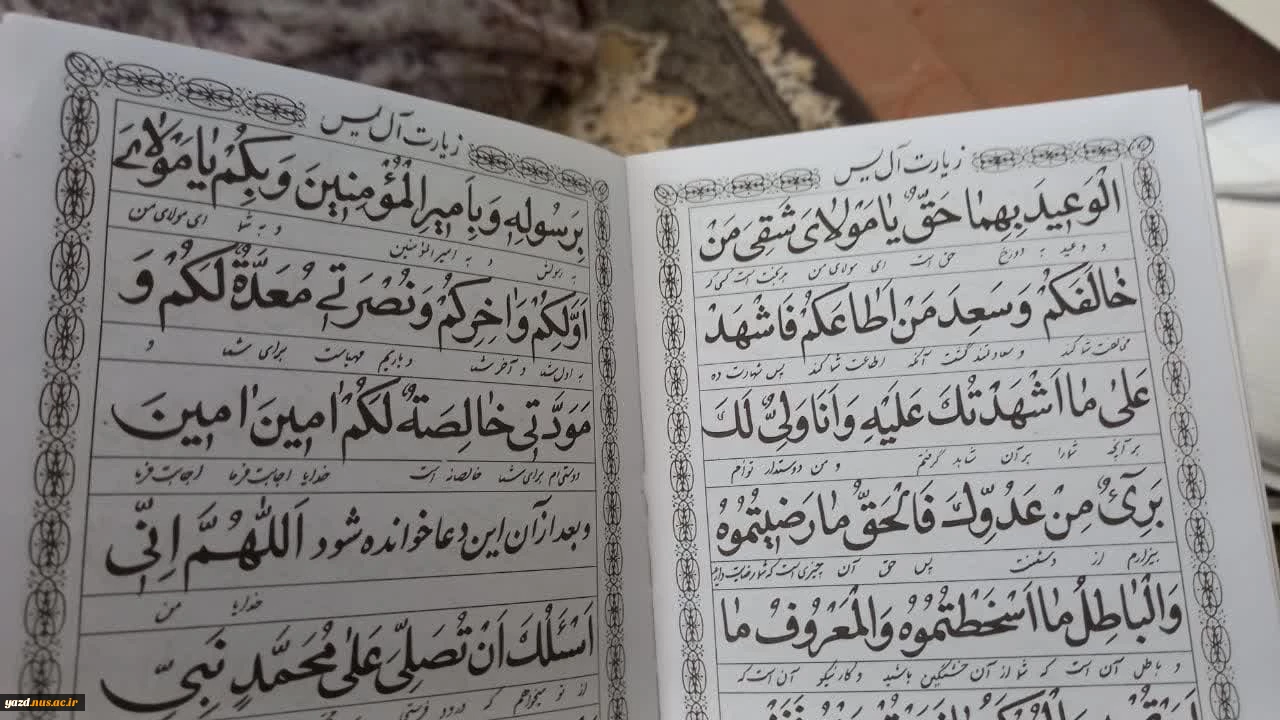 زیارت آل یس
الْوَعیدَ بِهِمٰا حَقٌّ یٰا مَوْلٰایَ شَقِیَ مَنْ
و وعید به دوزخ حق است ای مولای من بدبخت است کسی که
خٰالَفَکُمْ وَ سَعِدَ مَنْ اَطٰاعَکُمْ فَاشْهَدْ
مخالفت شما کند و سعادتمند گشت آنکه اطاعت شما کند پس شهادت ده
عَلیٰ مٰا اَشْهَدْتُكَ عَلَیْهِ وَ اَنَا وَلِیٌّ لَكَ
بر آنچه شما را بر آن شاهد گرفتم و من دوستدار توام
بَریٓءٌ مِنْ عَدُوِّكَ فَالْحَقُّ مٰا رَضیٖتُمُوهُ
بیزارم از دشمنت پس حق آن چیزی است که شما رضایت دارید
وَالْبٰاطِلُ مٰا اَسْخَطْتُمُوهُ وَالْمَعْرُوفُ مٰا
و باطل آن است که شما از آن خشمگین باشید و کار نیکو آن است که
زیارت آل یس
بِرَسُولِهٖ وَ بِاَمیرِ الْمُؤْمِنینَ وَ بِکُمْ یٰا مَوْلٰایَ
به رسولش و به امیرالمؤمنین و به شما ای مولای من
اَوَّلِکُمْ وَ اٰخِرِکُمْ وَ نُصْرَتی مُعَدَّةٌ لَکُمْ وَ
به اول شما و آخر شما و یاریم مهیاست برای شما و
مَوَدَّتی خٰالِصَةٌ لَکُمْ اٰمینَ اٰمینَ
دوستی‌ام برای شما خالصانه است خدایا اجابت فرما اجابت فرما
و بعد از آن این دعا خوانده شود اَللّٰهُمَّ اِنّی
خدایا من
اَسْئَلُكَ اَنْ تُصَلِّیَ عَلیٰ مُحَمَّدٍ نَبِیِّ
از تو میخواهم که درود فرستی
yazd.nus.ac.ir